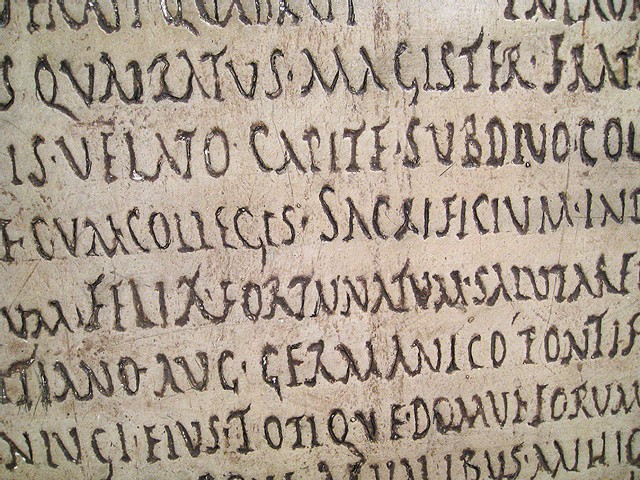 S QVADRATVS·MAGISTER·FRAT
IS·VELATO CAPITE·SVBDIVO COL
E CVM COLLEGIS·SACRIFICIVM·IN
VM·FELIX·FORTVNATVM·SALVTARE
ITIANO·AVG·GERMANICO PONTIF
NIVGI EIVS·TOTIQVE DOMVI EORVM